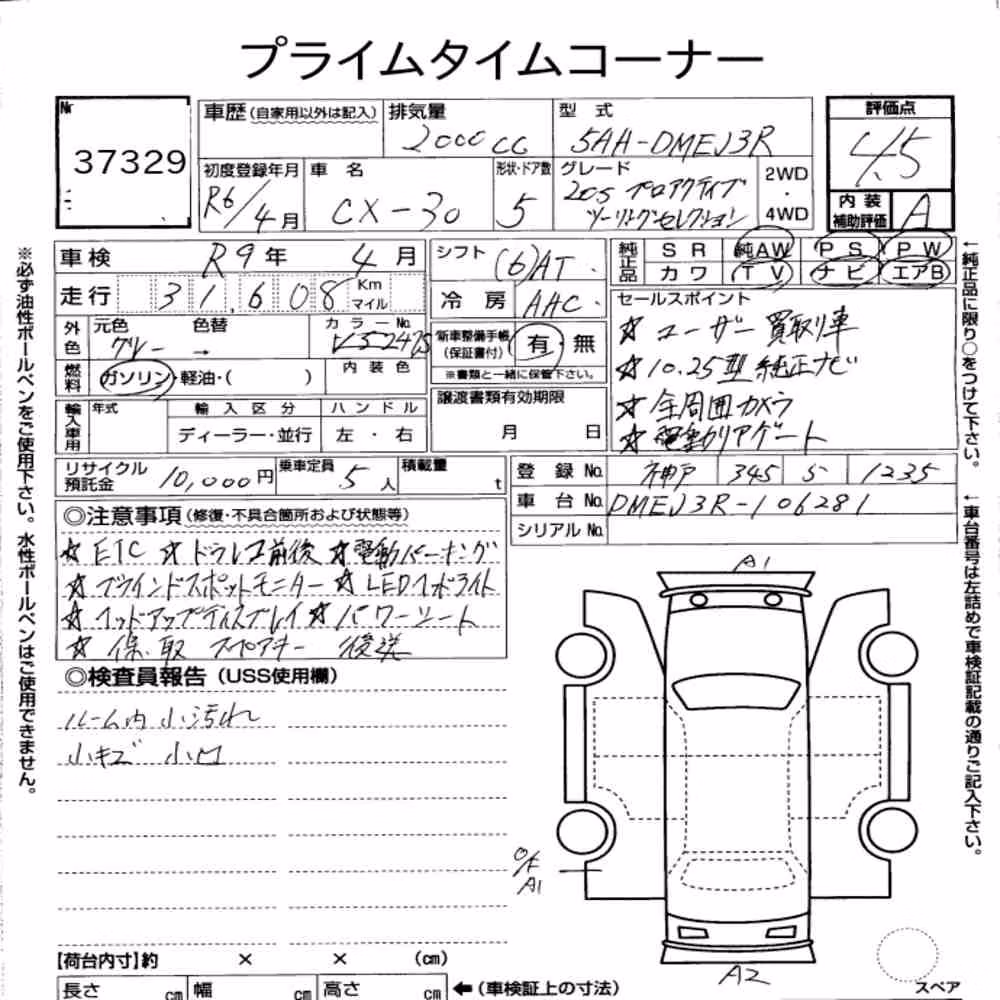 プライムタイムコーナー
Nr 37329
車歴(自家用以外は記入) 排気量 2000cc 型式 5AA-DMEJ3R
評価点 4.5
初度登録年月 R6/4月 車名 CX-30 形状・ドア数 5 グレード 20S プロアクティブ ツーリングセレクション 2WD・4WD
内装補助評価 A
車検 R9年 4月 シフト (6)AT 純正品 SR 純AW PS PW
カワ TV ナビ エアB
走行 31,608 Km マイル 冷房 AAC
外色 元色 グレー 色替 → カラーNo. 新車整備手帳(保証書付) 有・無
※書類と一緒に保管下さい。
燃料 ガソリン・軽油・( ) 内装色
輸入車用 年式 輸入区分 ハンドル
ディーラー・並行 左・右
譲渡書類有効期限
月 日
セールスポイント
☆ユーザー買取り車
☆10.25型純正ナビ
☆全周囲カメラ
☆電動リアゲート
リサイクル預託金 10,000円 乗車定員 5人 積載量 t
登録No. 神戸 345 1235
車台No. DMEJ3R-106281
シリアルNo.
◎注意事項(修復・不具合箇所および状態等)
☆ETC ☆ドラレコ前後 ☆電動パーキング
☆ブラインドスポットモニター ☆LEDヘッドライト
☆ヘッドアップディスプレイ ☆パワーシート
☆保・取 スペアキー 後送
◎検査員報告(USS使用欄)
ルーム内小汚れ
小キズ 小凹
A1
A1
A2
スペア
【荷台内寸】約 × × (cm)
長さ cm 幅 cm 高さ cm ←(車検証上の寸法)
※必ず油性ボールペンをご使用下さい。水性ボールペンはご使用できません。
←純正品に限り○をつけて下さい。
←車台番号は左詰めで車検証記載の通りご記入下さい。